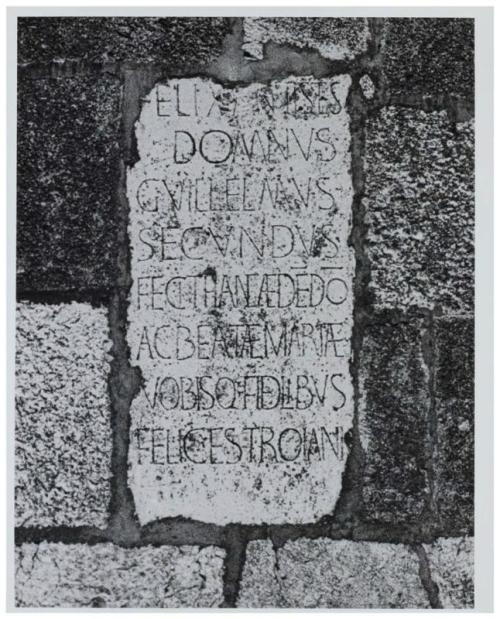 ELIX
DOMNVS
GVILLELMVS
SECVNDVS
FECIT HANC ÆDE DO
AC BEATÆ MARIÆ
VOBISQ FIDELIBVS
FELICES TROIANI